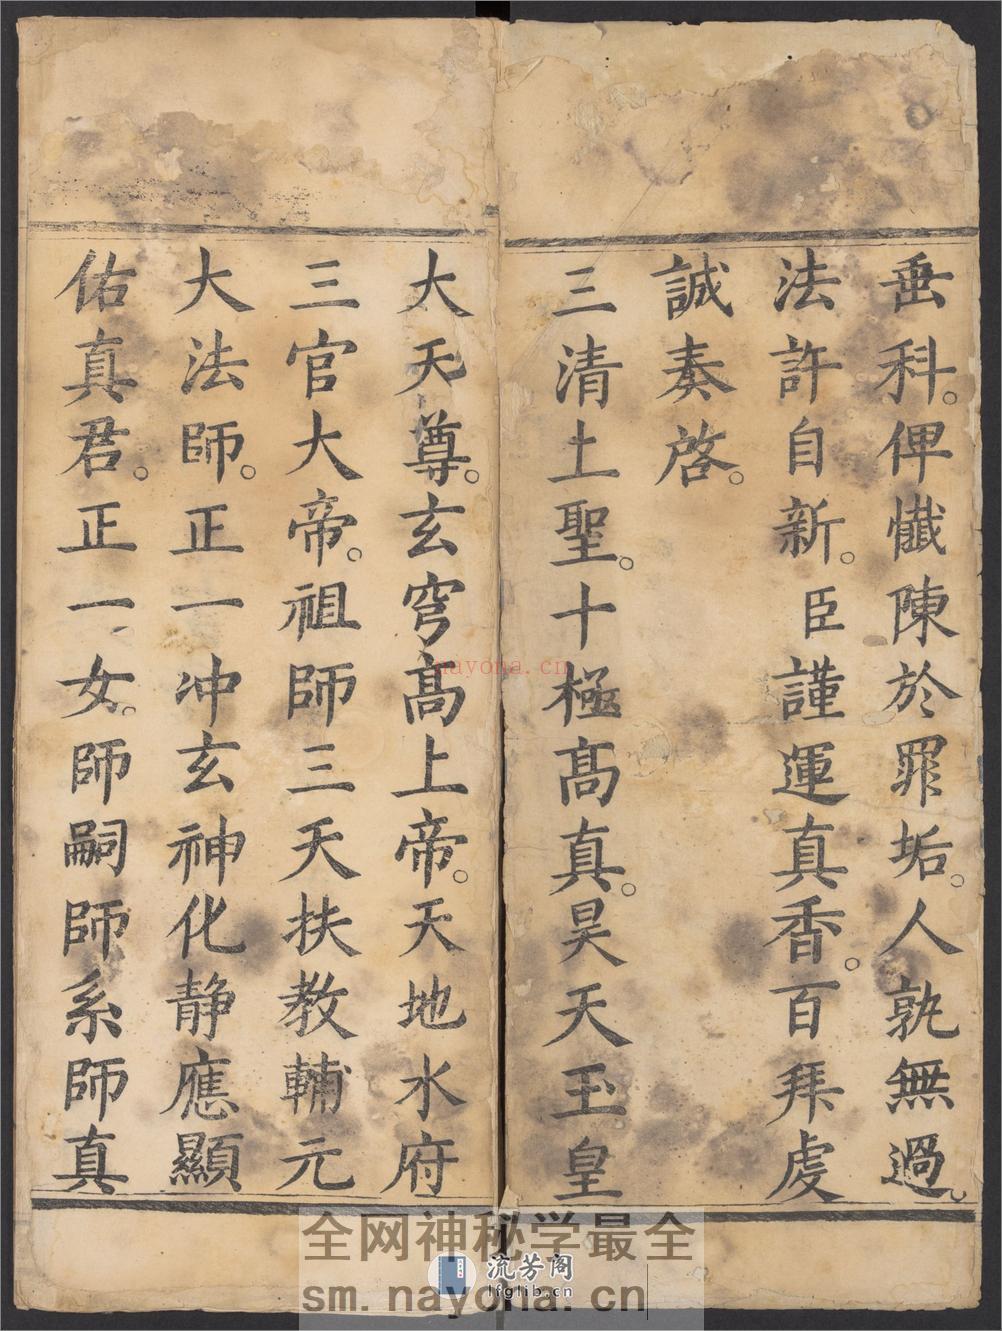 垂科。俾懺陳於罪垢。人孰無過。
法許自新。臣謹運真香。百拜虔
誠奏啓。
三清上聖。十極髙真。昊天玉皇
大天尊。玄穹髙上帝。天地水府
三官大帝。祖師三天扶教輔元
大法師。正一冲玄神化静應顯
佑真君。正一女。師嗣師系師真
nayona.cn
全网神秘学最全
流芳阁
lfglib.cn
sm.nayona.cn